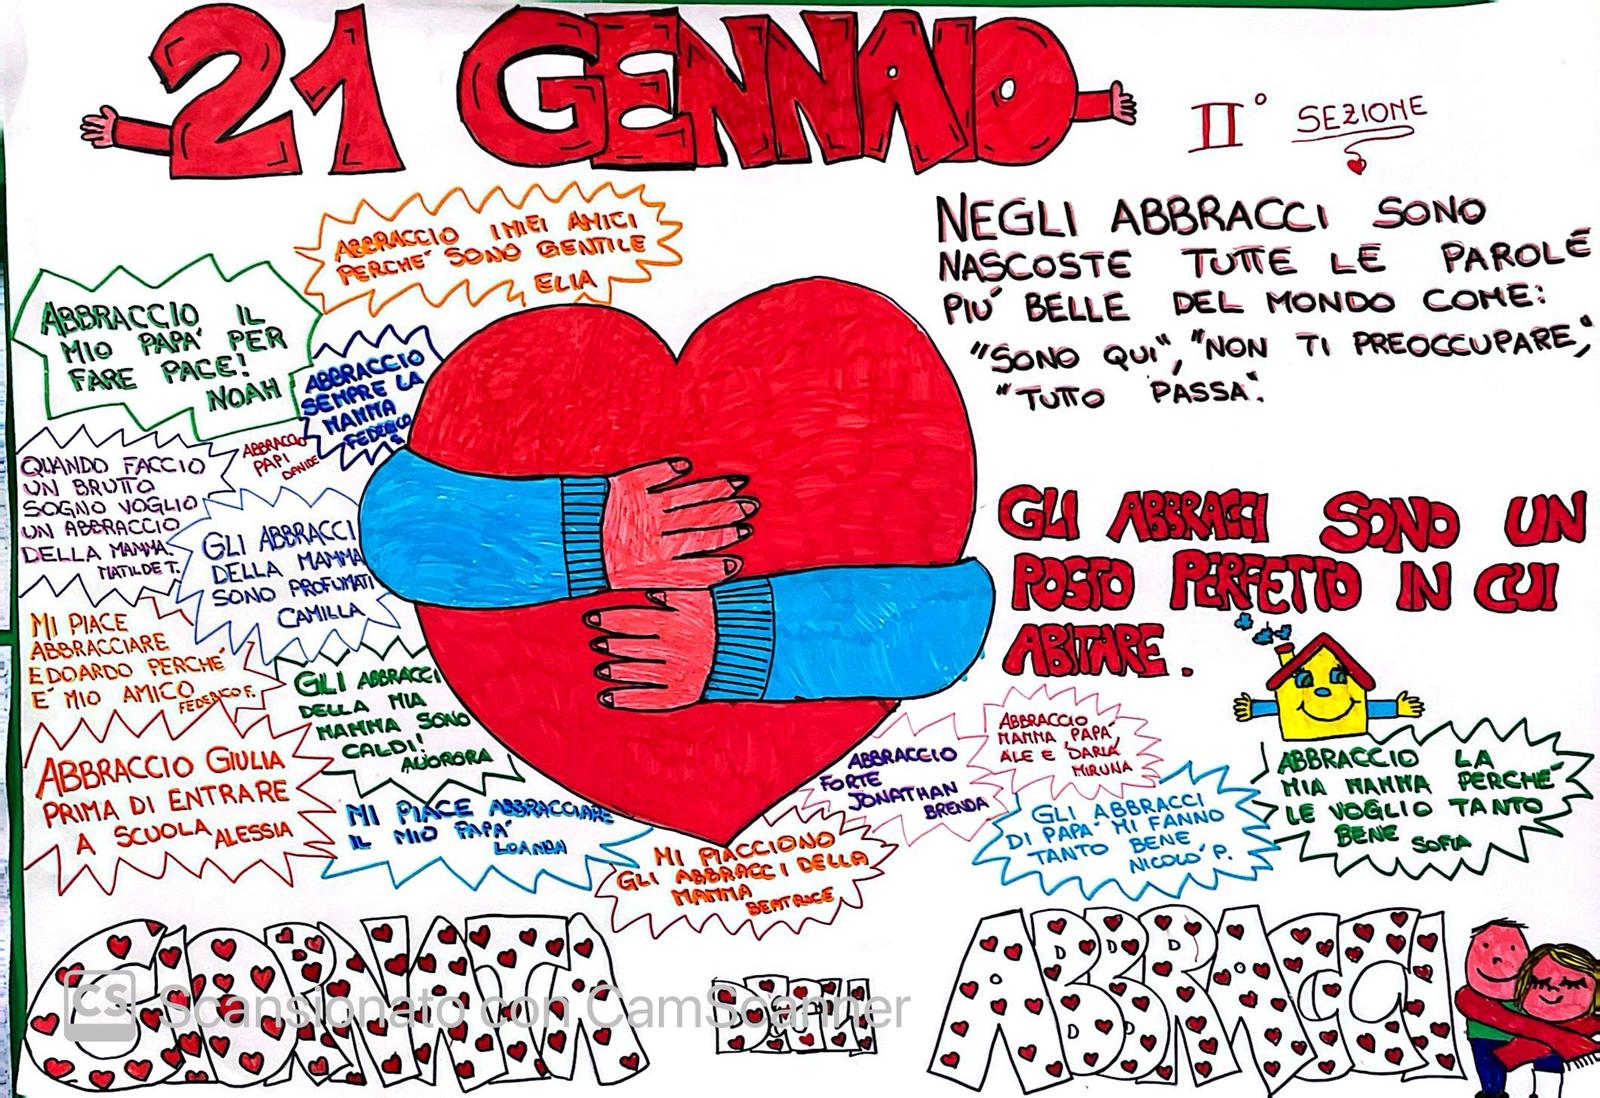 21 GENNAIO
II° SEZIONE
NEGLI ABBRACCI SONO
NASCOSTE TUTTE LE PAROLE
PIU' BELLE DEL MONDO COME:
"SONO QUI", "NON TI PREOCCUPARE",
"TUTTO PASSA".
ABBRACCIO I MIEI AMICI
PERCHE' SONO GENTILE
ELIA
ABBRACCIO IL
MIO PAPA' PER
FARE PACE!
NOAH
ABBRACCIO
SEMPRE LA
MAMMA
FEDERICO
S.
ABBRACCIO
PAPI
DAVIDE
QUANDO FACCIO
UN BRUTTO
SOGNO VOGLIO
UN ABBRACCIO
DELLA MAMMA.
MATILDE T.
GLI ABBRACCI
DELLA MAMMA
SONO PROFUMATI
CAMILLA
MI PIACE
ABBRACCIARE
EDOARDO PERCHE'
E' MIO AMICO
FEDERICO F.
GLI ABBRACCI
DELLA MIA
MAMMA SONO
CALDI!
AUORORA
ABBRACCIO GIULIA
PRIMA DI ENTRARE
A SCUOLA ALESSIA
MI PIACE ABBRACCIARE
IL MIO PAPA'
LOANDA
MI PIACCIONO
GLI ABBRACCI DELLA
MAMMA
BEATRICE
ABBRACCIO
FORTE
JONATHAN
BRENDA
ABBRACCIO
MAMMA PAPA',
ALE E DARIA
MIRUNA
GLI ABBRACCI
DI PAPA' MI FANNO
TANTO BENE
NICOLO' P.
GLI ABBRACCI SONO UN
POSTO PERFETTO IN CUI
ABITARE.
ABBRACCIO LA
MIA MAMMA PERCHE'
LE VOGLIO TANTO
BENE SOFIA
GIORNATA DEGLI ABBRACCI
CS Scansionato con CamScanner